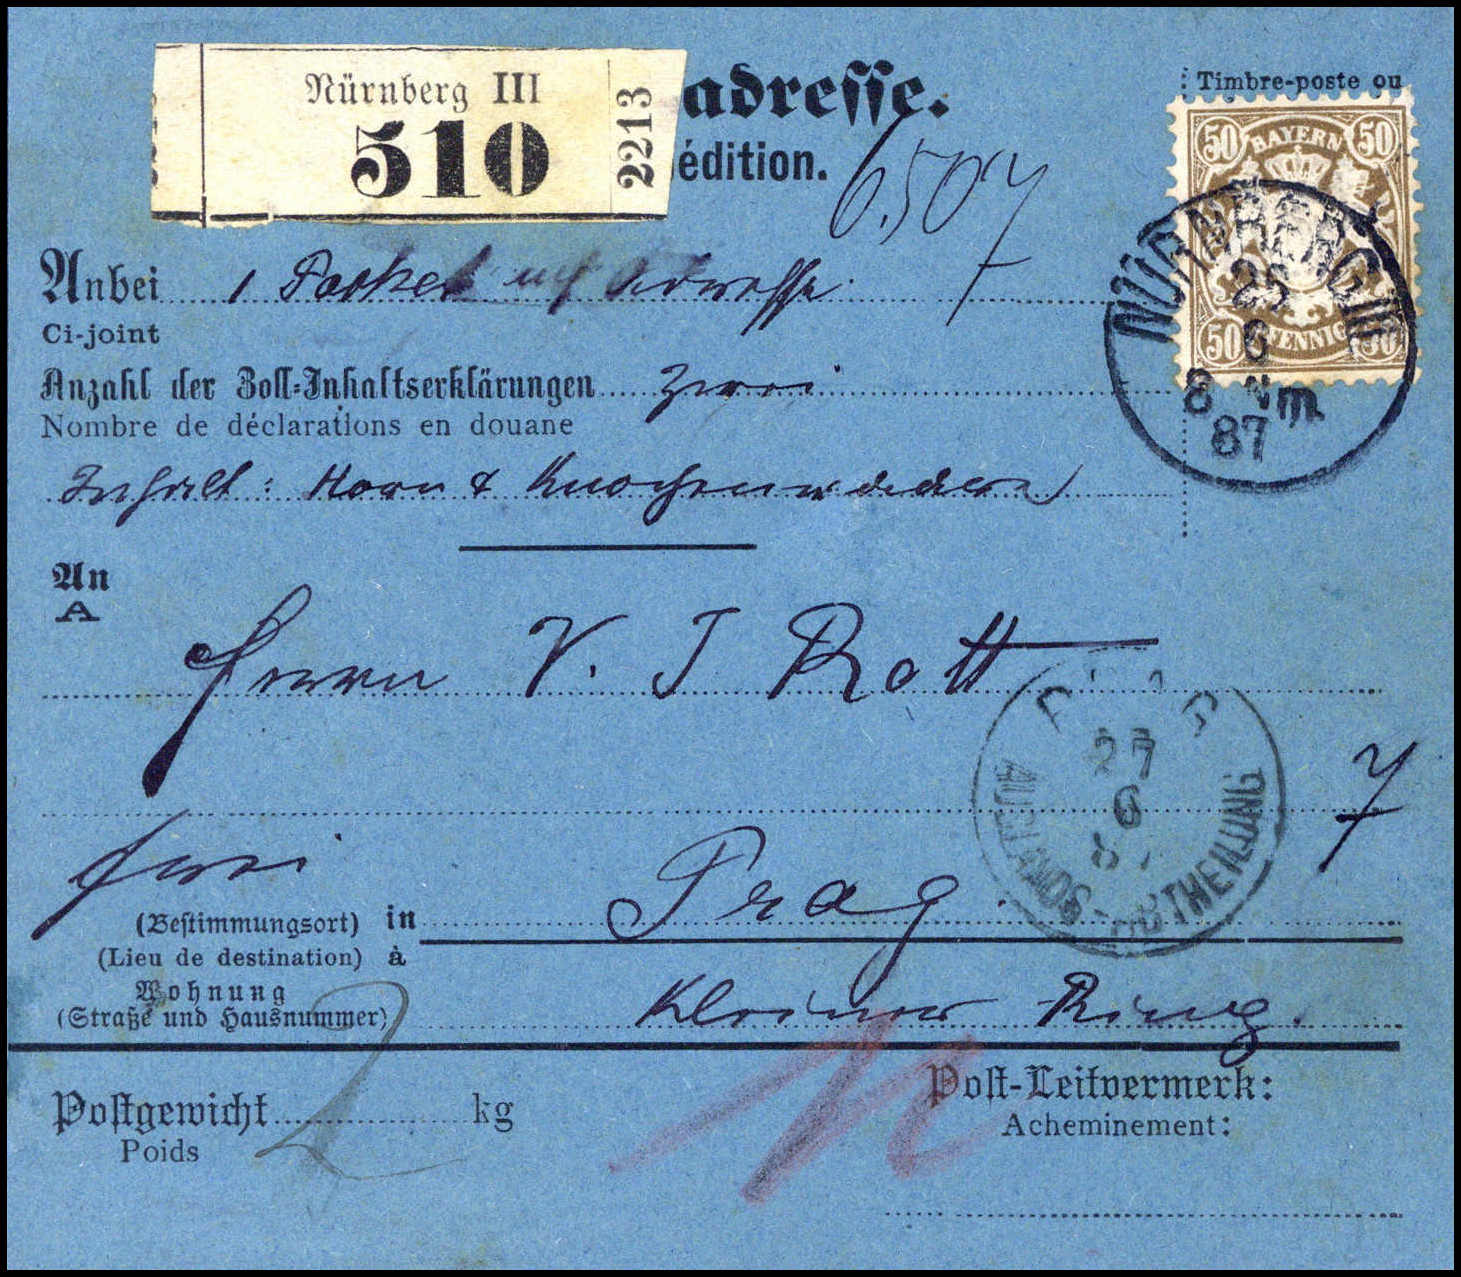 Nürnberg III
510
2213
adresse.
édition.
6,50
Timbre-poste ou
50 BAYERN 50
50 PFENNIG 50
NÜRNBERG III
26
6
8 Nm
87
Anbei 1 Packet mit Adresse
Ci-joint
Anzahl der Zoll-Inhaltserklärungen zwei
Nombre de déclarations en douane
Inhalt: Horn & Knochenwaaren
An
A
Herrn V. J Rott
PRAG
27
6
87
AUSLANDS-ABTHEILUNG
7
frei
(Bestimmungsort) in Prag
(Lieu de destination) à
Wohnung
(Straße und Hausnummer) Kleiner Ring.
Postgewicht 2 kg
Poids
Post-Leitvermerk:
Acheminement: